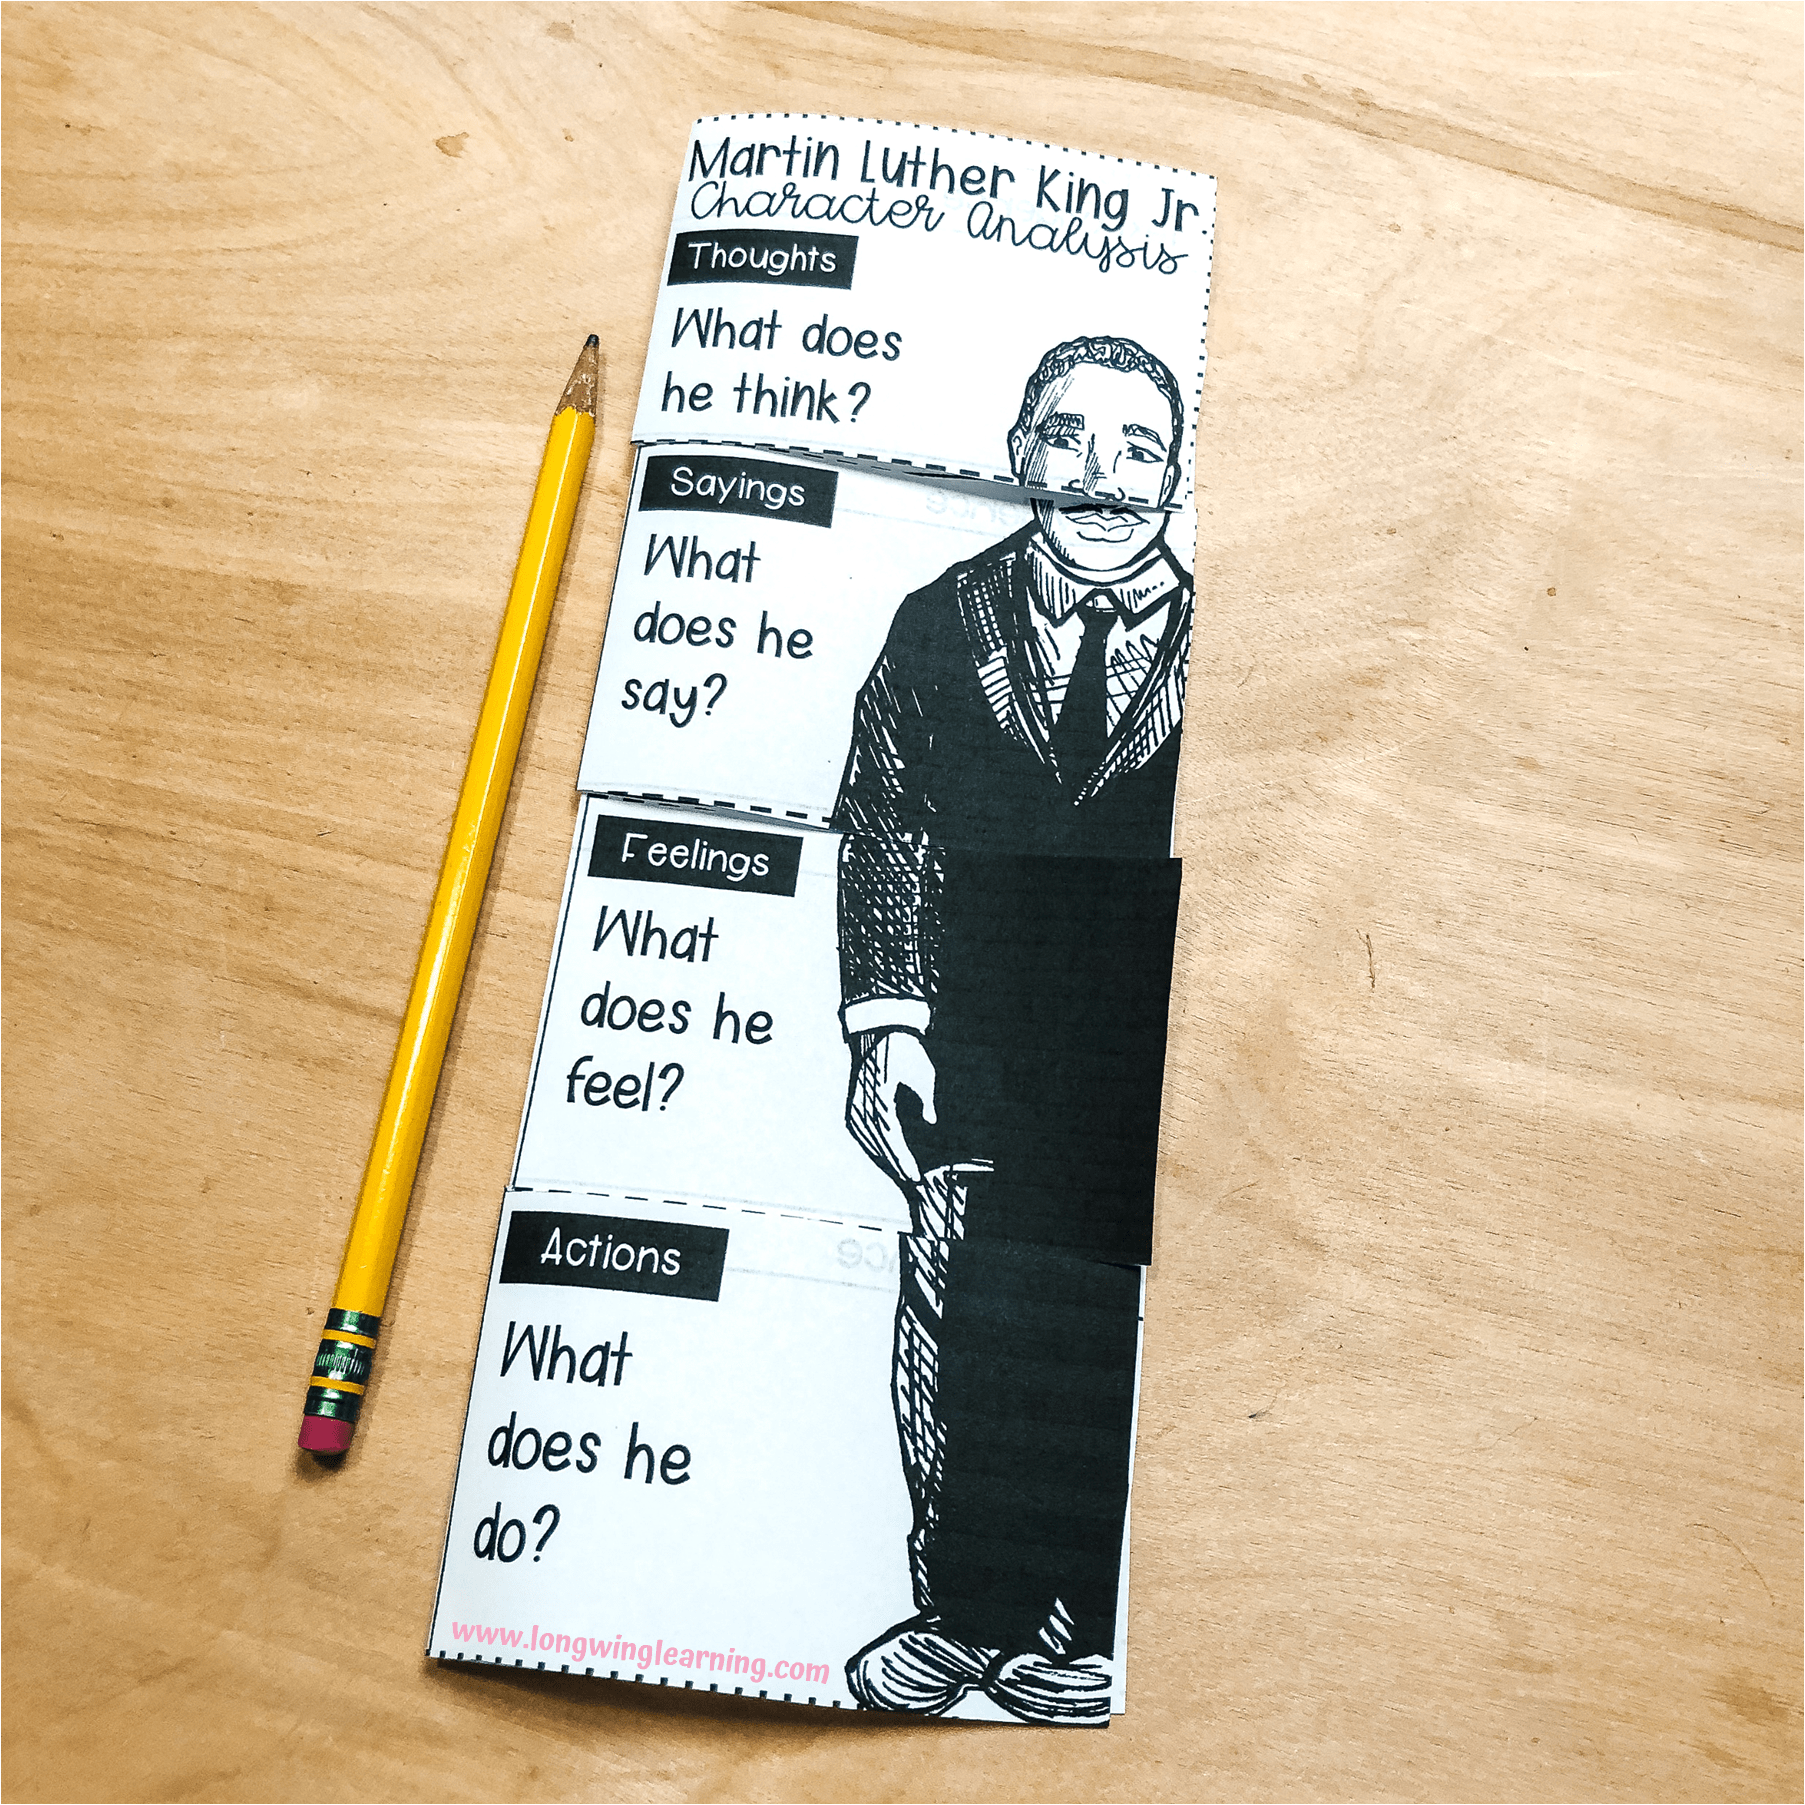 Martin Luther King Jr.
Character Analysis
Thoughts
What does
he think?
Sayings
What
does he
say?
Feelings
What
does he
feel?
Actions
What
does he
do?
www.longwinglearning.com